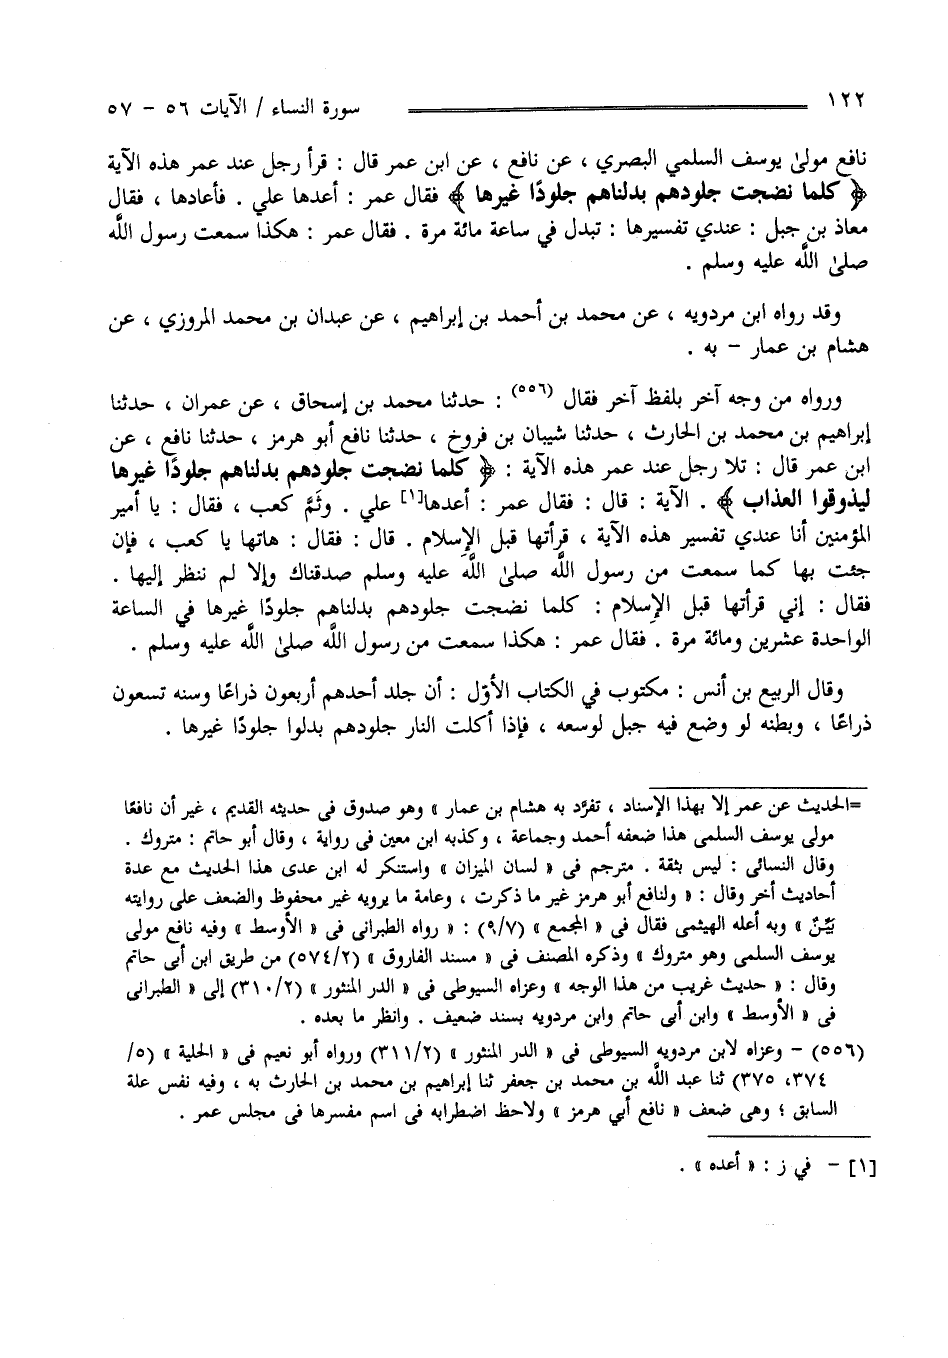 ١٢٢ سورة النساء / الآيات ٥٦ - ٥٧
نافع مولىٰ يوسف السلمي البصري ، عن نافع ، عن ابن عمر قال : قرأ رجل عند عمر هذه الآية
﴿ كلما نضجت جلودهم بدلناهم جلودًا غيرها ﴾ فقال عمر : أعدها علي . فأعادها ، فقال
معاذ بن جبل : عندي تفسيرها : تبدل في ساعة مائة مرة . فقال عمر : هكذا سمعت رسول اللَّه
صلىٰ اللَّه عليه وسلم .
وقد رواه ابن مردويه ، عن محمد بن أحمد بن إبراهيم ، عن عبدان بن محمد المروزي ، عن
هشام بن عمار - به .
ورواه من وجه آخر بلفظ آخر فقال (٥٥٦) : حدثنا محمد بن إسحاق ، عن عمران ، حدثنا
إبراهيم بن محمد بن الحارث ، حدثنا شيبان بن فروخ ، حدثنا نافع أبو هرمز ، حدثنا نافع ، عن
ابن عمر قال : تلا رجل عند عمر هذه الآية : ﴿ كلما نضجت جلودهم بدلناهم جلودًا غيرها
ليذوقوا العذاب ﴾ . الآية : قال : فقال عمر : أعدها[١] علي . وثَمَّ كعب ، فقال : يا أمير
المؤمنين أنا عندي تفسير هذه الآية ، قرأتها قبل الإسلام . قال : فقال : هاتها يا كعب ، فإن
جئت بها كما سمعت من رسول اللَّه صلىٰ اللَّه عليه وسلم صدقناك وإلا لم ننظر إليها .
فقال : إني قرأتها قبل الإسلام : كلما نضجت جلودهم بدلناهم جلودًا غيرها في الساعة
الواحدة عشرين ومائة مرة . فقال عمر : هكذا سمعت من رسول اللَّه صلىٰ اللَّه عليه وسلم .
وقال الربيع بن أنس : مكتوب في الكتاب الأوّل : أن جلد أحدهم أربعون ذراعًا وسنه تسعون
ذراعًا ، وبطنه لو وضع فيه جبل لوسعه ، فإذا أكلت النار جلودهم بدلوا جلودًا غيرها .
=الحديث عن عمر إلا بهذا الإسناد ، تفرّد به هشام بن عمار » وهو صدوق فى حديثه القديم ، غير أن نافعًا
مولى يوسف السلمى هذا ضعفه أحمد وجماعة ، وكذبه ابن معين فى رواية ، وقال أبو حاتم : متروك .
وقال النسائى : ليس بثقة . مترجم فى « لسان الميزان » واستنكر له ابن عدى هذا الحديث مع عدة
أحاديث أخر وقال : « ولنافع أبو هرمز غير ما ذكرت ، وعامة ما يرويه غير محفوظ والضعف على روايته
بَيِّنٌ » وبه أعله الهيثمى فقال فى « المجمع » (٩/٧) : « رواه الطبرانى فى « الأوسط » وفيه نافع مولى
يوسف السلمى وهو متروك » وذكره المصنف فى « مسند الفاروق » (٥٧٤/٢) من طريق ابن أبى حاتم
وقال : « حديث غريب من هذا الوجه » وعزاه السيوطى فى « الدر المنثور » (٣١٠/٢) إلى « الطبرانى
فى « الأوسط » وابن أبى حاتم وابن مردويه بسند ضعيف . وانظر ما بعده .
(٥٥٦) - وعزاه لابن مردويه السيوطى فى « الدر المنثور » (٣١١/٢) ورواه أبو نعيم فى « الحلية » (٥/
٣٧٤، ٣٧٥) ثنا عبد اللَّه بن محمد بن جعفر ثنا إبراهيم بن محمد بن الحارث به ، وفيه نفس علة
السابق ؛ وهى ضعف « نافع أبي هرمز » ولاحظ اضطرابه فى اسم مفسرها فى مجلس عمر .
[١] - في ز : « أعده » .